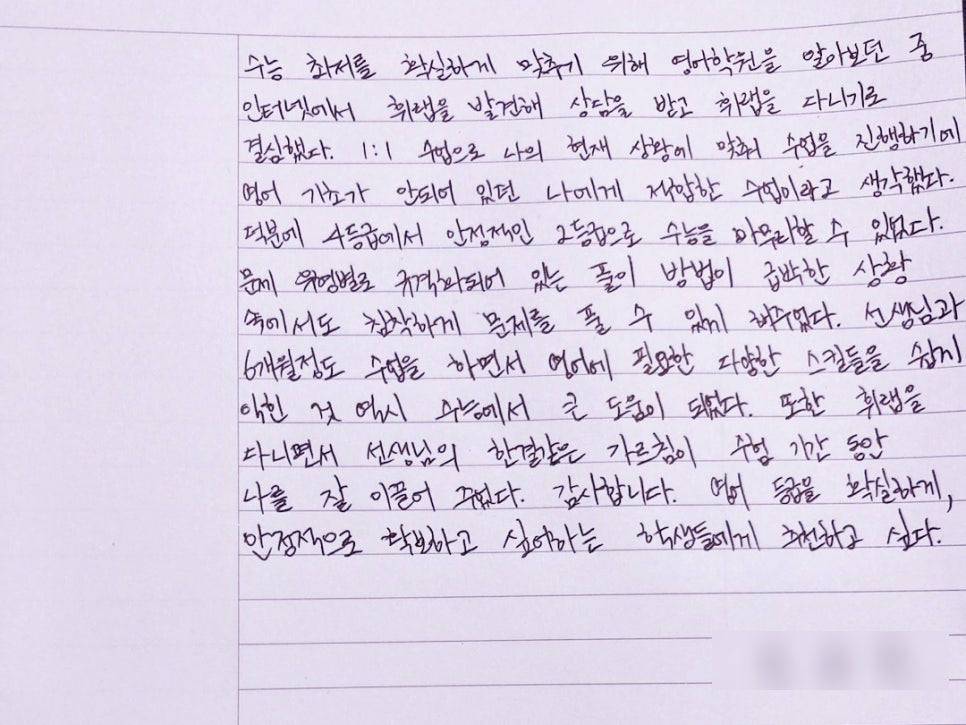 수능 최저를 확실하게 맞추기 위해 영어학원을 알아보던 중
인터넷에서 휘랩을 발견해 상담을 받고 휘랩을 다니기로
결심했다. 1:1 수업으로 나의 현재 상황에 맞춰 수업을 진행하기에
영어 기초가 안되어 있던 나에게 적합한 수업이라고 생각했다.
덕분에 4등급에서 안정적인 2등급으로 수능을 마무리할 수 있었다.
문제 유형별로 규격화되어 있는 풀이 방법이 급박한 상황
속에서도 침착하게 문제를 풀 수 있게 해주었다. 선생님과
6개월정도 수업을 하면서 영어에 필요한 다양한 스킬들을 쉽게
익힌 것 역시 수능에서 큰 도움이 되었다. 또한 휘랩을
다니면서 선생님의 한결같은 가르침이 수험 기간 동안
나를 잘 이끌어 주었다. 감사합니다. 영어 등급을 확실하게,
안정적으로 확보하고 싶어하는 학생들에게 추천하고 싶다.